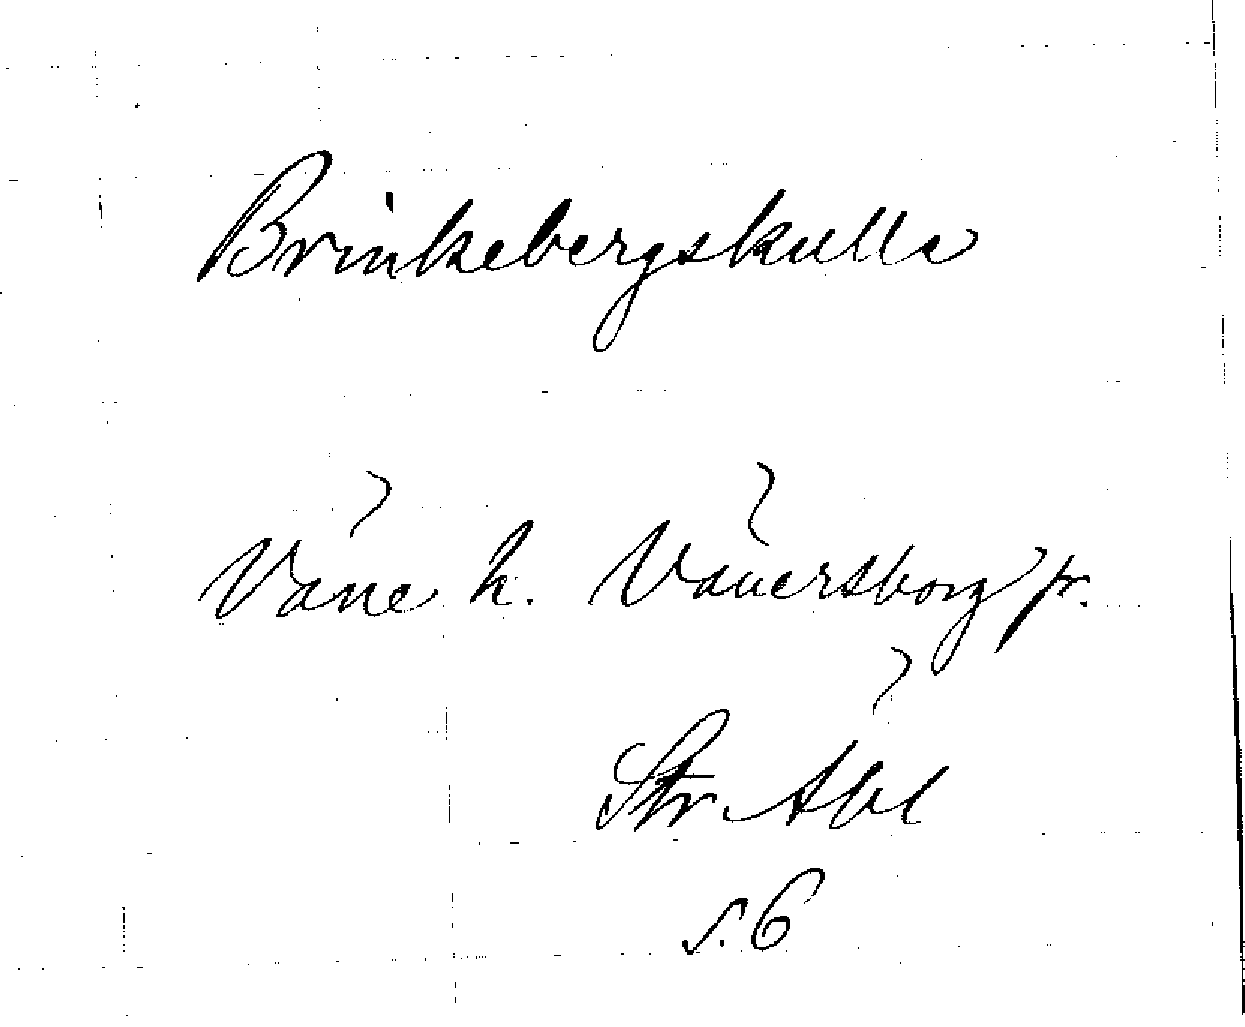 Brinkebergskulle
Väne h. Vänersborg fr.
Str. Äbl
s. 6